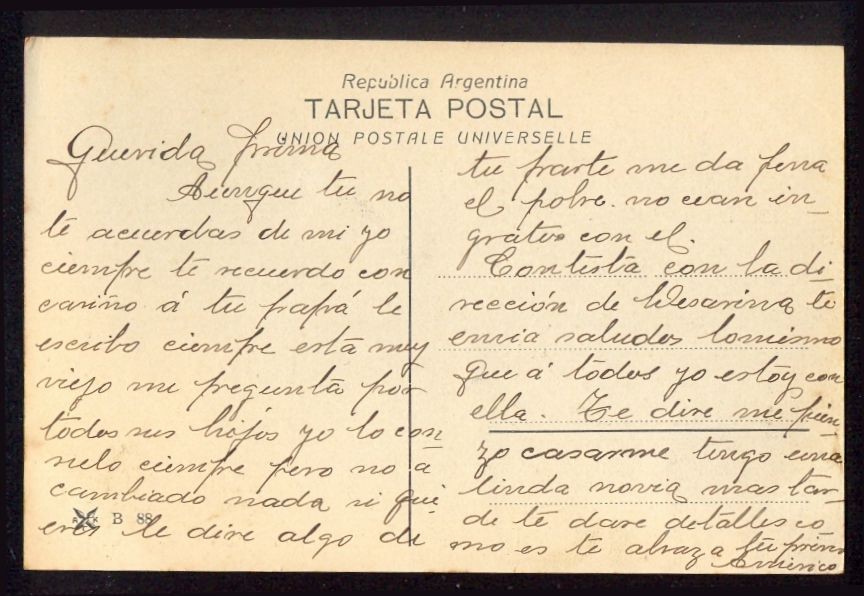 Republica Argentina
TARJETA POSTAL
UNION POSTALE UNIVERSELLE
Querida prima
Aunque tu no
te acuerdas de mi yo
ciempre te recuerdo con
cariño á tu papá le
escribo ciempre está muy
viejo me pregunta por
todos sus hijos yo lo con
suelo ciempre pero no á
cambiado nada si qui
eres le dire algo de
B 88
tu parte me da pena
el pobre. no cean in-
gratos con el.
Contesta con la di-
rección de Wesarina te
envia saludos lo mismo
que á todos yo estoy con
ella. Te dire me pien-
zo casarme tengo una
linda novia mas tar-
de te dare detalles co
mo es te abraza tu primo
Américo